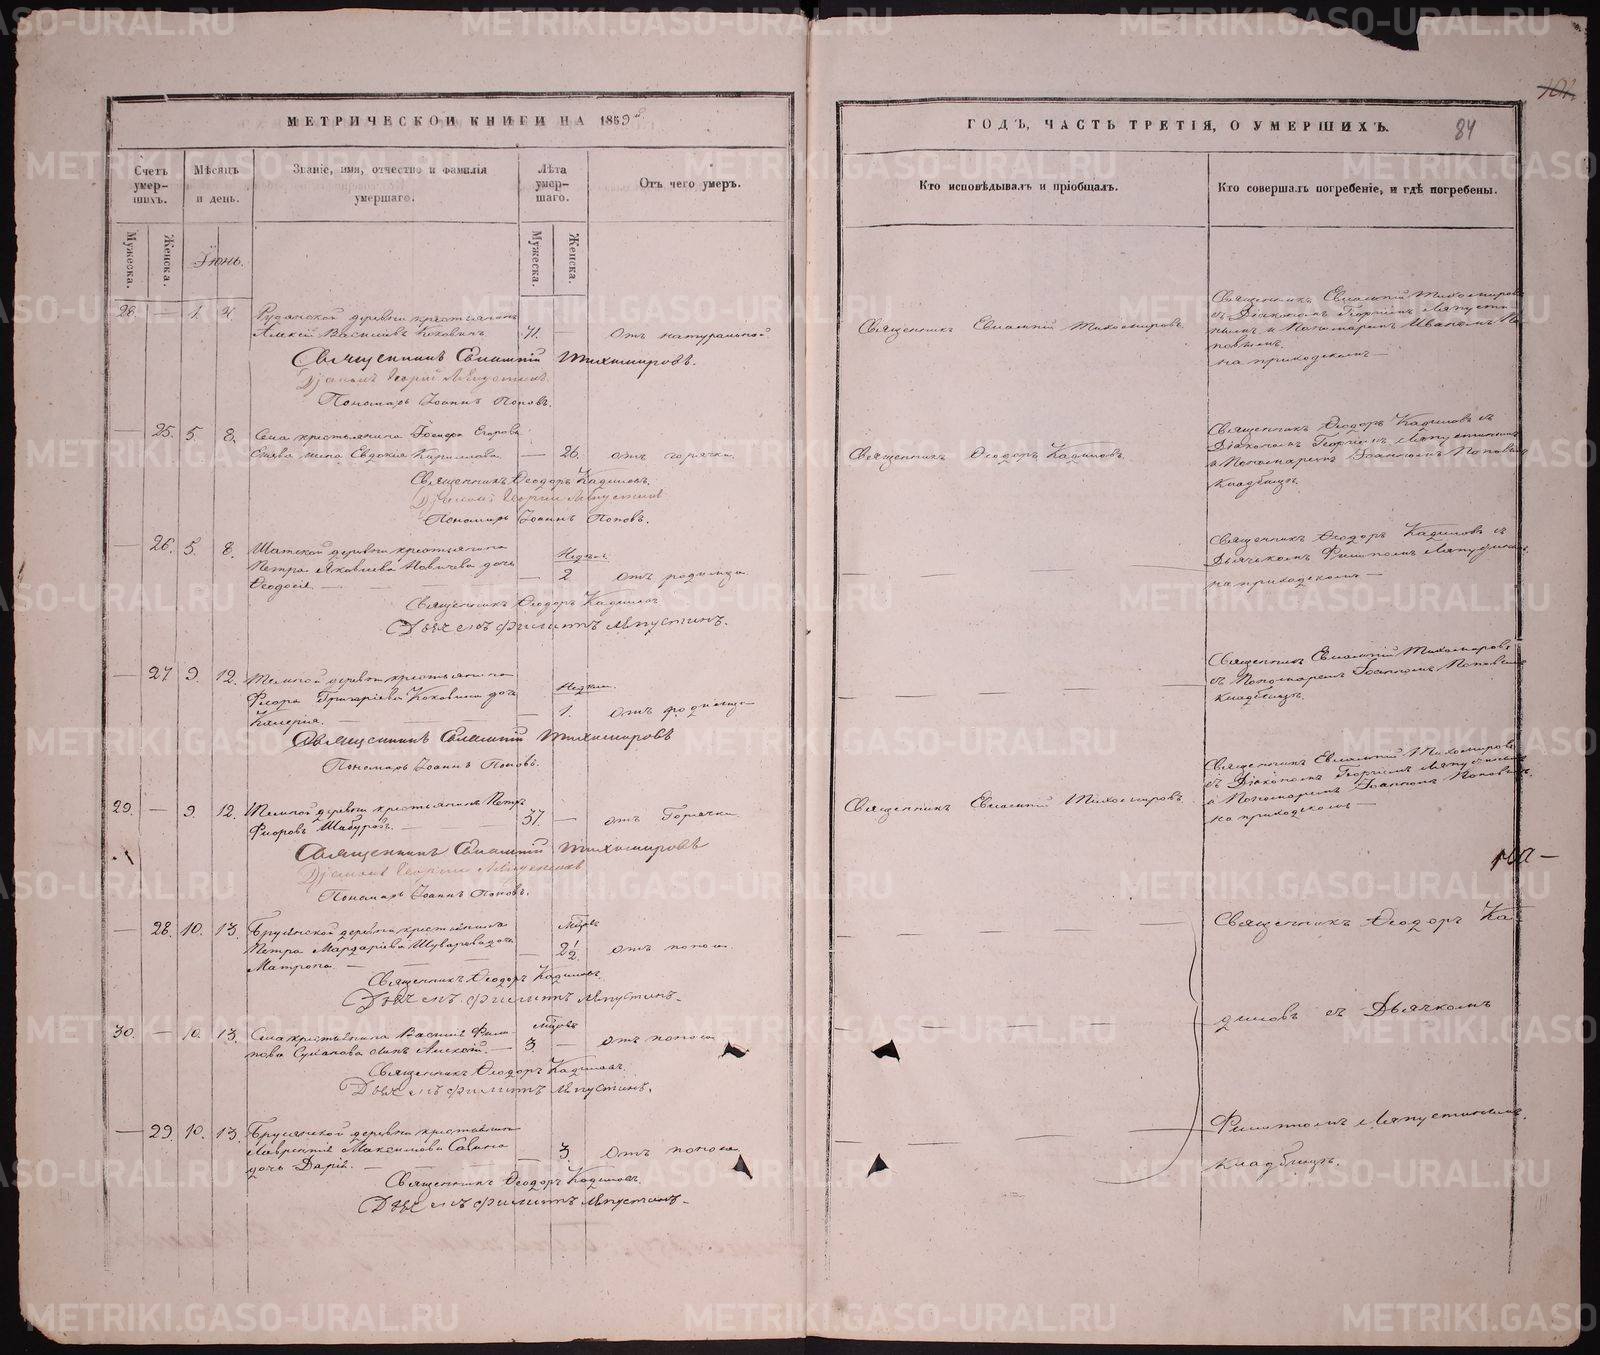 МЕТРИЧЕСКОЙ КНИГИ НА 1859й
Счетъ умер-
шихъ.
Мѣсяцъ
и день.
Званіе, имя, отчество и фамилія
умершаго.
Лѣта
умер-
шаго.
Отъ чего умеръ.
Мужеска.
Женска.
Іюнь.
Мужеска.
Женска.
28. — 1. 4. Рудянской деревни крестьянинъ
Алексѣй Васильевъ Коковинъ 71. — отъ натуральной
Священникъ Евлампій Тихомировъ.
Діаконъ Георгій Ляпустинъ
Пономарь Іоаннъ Поповъ.
— 25. 5. 8. Села крестьянина Егорова
жена Евдокія Кириллова — 26. отъ горячки.
Священникъ Ѳеодоръ Кадиловъ.
Діаконъ Георгій Ляпустинъ
Пономарь Іоаннъ Поповъ.
— 26. 5. 8. деревни крестьянина
Петра Яковлева дочь
Ѳеодосія. — Недѣл.
2 отъ родимца.
Священникъ Ѳеодоръ Кадиловъ
Дьячекъ Филиппъ Ляпустинъ.
— 27 9. 12. деревни крестьянина
Флора Григорьева Коковина дочь
Валерія. — Недѣли.
1. отъ родимца
Священникъ Евлампій Тихомировъ
Пономарь Іоаннъ Поповъ.
29. — 9. 12. деревни крестьянинъ Петръ
Флоровъ Шабуровъ. — 37 — отъ Горячки
Священникъ Евлампій Тихомировъ
Діаконъ Георгій Ляпустинъ
Пономарь Іоаннъ Поповъ.
— 28. 10. 13. Брусянской деревни крестьянина
Петра Мардарьева дочь
Матрона. — Мѣсяц.
2½ отъ поноса.
Священникъ Ѳеодоръ Кадиловъ.
Дьячекъ Филиппъ Ляпустинъ.
30. — 10. 13. Села крестьянина Василія Фили-
пова сынъ Алексѣй. — 3. — отъ поноса
Священникъ Ѳеодоръ Кадиловъ
Дьячекъ Филиппъ Ляпустинъ.
— 29. 10. 13. Брусянской деревни крестьянина
Лаврентія Максимова Савина
дочь Дарія. — — 3. отъ поноса
Священникъ Ѳеодоръ Кадиловъ
Дьячекъ Филиппъ Ляпустинъ.
ГОДЪ, ЧАСТЬ ТРЕТІЯ, О УМЕРШИХЪ.
84
Кто исповѣдывалъ и пріобщалъ.
Кто совершалъ погребеніе, и гдѣ погребены.
Священникъ Евлампій Тихомировъ.
Священникъ Евлампій Тихомировъ
съ Діакономъ Георгіемъ Ляпусти-
нымъ и Пономаремъ Иваномъ По-
повымъ.
на приходскомъ —
Священникъ Ѳеодоръ Кадиловъ.
Священникъ Ѳеодоръ Кадиловъ съ
Діакономъ Георгіемъ Ляпустинымъ
и Пономаремъ Іоанномъ Поповымъ
Кладбищѣ.
Священникъ Ѳеодоръ Кадиловъ съ
Дьячкомъ Филиппомъ Ляпустинымъ.
на приходскомъ —
Священникъ Евлампій Тихомировъ
съ Пономаремъ Іоанномъ Поповымъ
Кладбищѣ.
Священникъ Евлампій Тихомировъ.
Священникъ Евлампій Тихомировъ
съ Діакономъ Георгіемъ Ляпустинымъ
и Пономаремъ Іоанномъ Поповымъ.
на приходскомъ —
Священникъ Ѳеодоръ Ка-
диловъ съ Дьячкомъ
Филиппомъ Ляпустинымъ.
Кладбищѣ.
METRIKI.GASO-URAL.RU